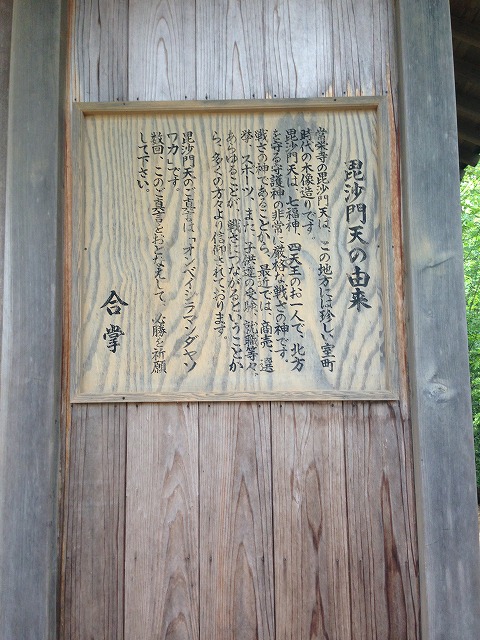 毘沙門天の由来
常栄寺の毘沙門天は、この地方には珍しい室町
時代の木像造りです。
毘沙門天は、七福神、四天王のお一人で、北方
を守る守護神の非常に厳格な戦さの神です。
戦さの神であることから、最近では、商売、選
挙、スポーツ、また、子供達の受験、就職等々、
あらゆることが、戦さにつながるということか
ら、多くの方々より信仰されております。
毘沙門天のご真言は、「オンベイシラマンダヤソ
ワカ」です。
数回、このご真言をおとなえして、必勝を祈願
して下さい。
合掌